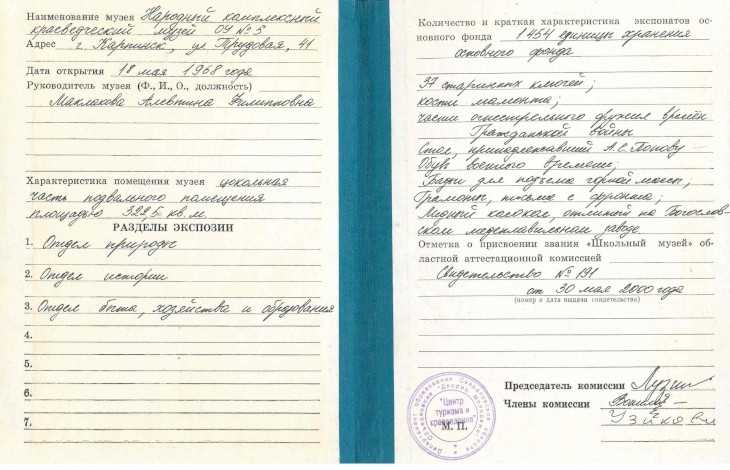 Наименование музея Народный комплексный
краеведческий музей ОУ № 5
Адрес г. Карпинск, ул. Трудовая, 41
Дата открытия 18 мая 1968 года
Руководитель музея (Ф., И., О., должность)
Маклакова Алевтина Филипповна
Характеристика помещения музея цокольная
часть подвального помещения
площадью 322,5 кв. м.
РАЗДЕЛЫ ЭКСПОЗИИ
1. Отдел природы
2. Отдел истории
3. Отдел быта, хозяйства и образования
4.
5.
6.
7.
Количество и краткая характеристика экспонатов ос-
новного фонда 1454 единицы хранения
основного фонда
37 старинных ключей;
кости мамонта;
части огнестрельного оружия времён
Гражданской войны
Стол, принадлежавший А.С. Попову
Обувь военного времени;
Бадьи для подъема горной массы;
Грамоты, письма с фронта;
Медный колокол, отлитый на Богослов-
ском медеплавильном заводе
Отметка о присвоении звания «Школьный музей» об-
ластной аттестационной комиссией
Свидетельство № 191
от 30 мая 2000 года
(номер и дата выдачи свидетельства)
Председатель комиссии
Члены комиссии
"Центр
туризма и
краеведения"
М. П.